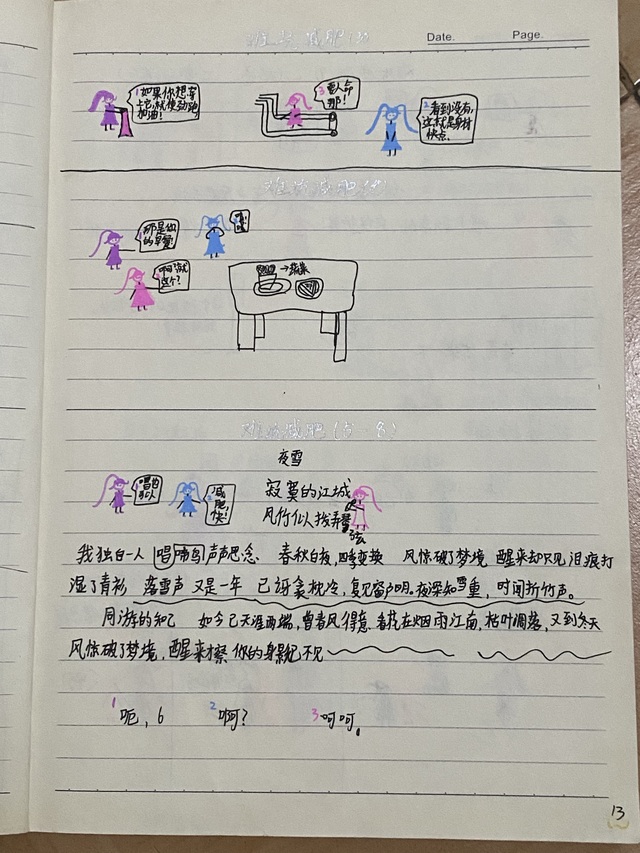 减肥(3)
Date.
Page.
1如果你想穿
上它,就使劲跑,
加油!
3要人命
那!
2看到没有,
这就是身材
快点.
减肥(4)
那是你
的早餐!
啊?就
这个?
→蔬菜
减肥(5-8)
夜雪
唱的
可以
减
肥,
快!
寂寞的江城
风竹似拨弄琴
弦
我独自一人 唱啼鸟声声思念 春秋白夜,四季变换 风惊破了梦境 醒来却只见泪痕打
湿了青衫 落雪声 又是一年 已讶衾枕冷,复见窗户明.夜深知雪重,时闻折竹声。
同游的知己 如今已天涯两端,曾春风得意 春花在烟雨江南,枯叶凋落,又到冬天
风惊破了梦境,醒来才察 你的身影已不见
1呃,6
2啊?
3呵呵。
13